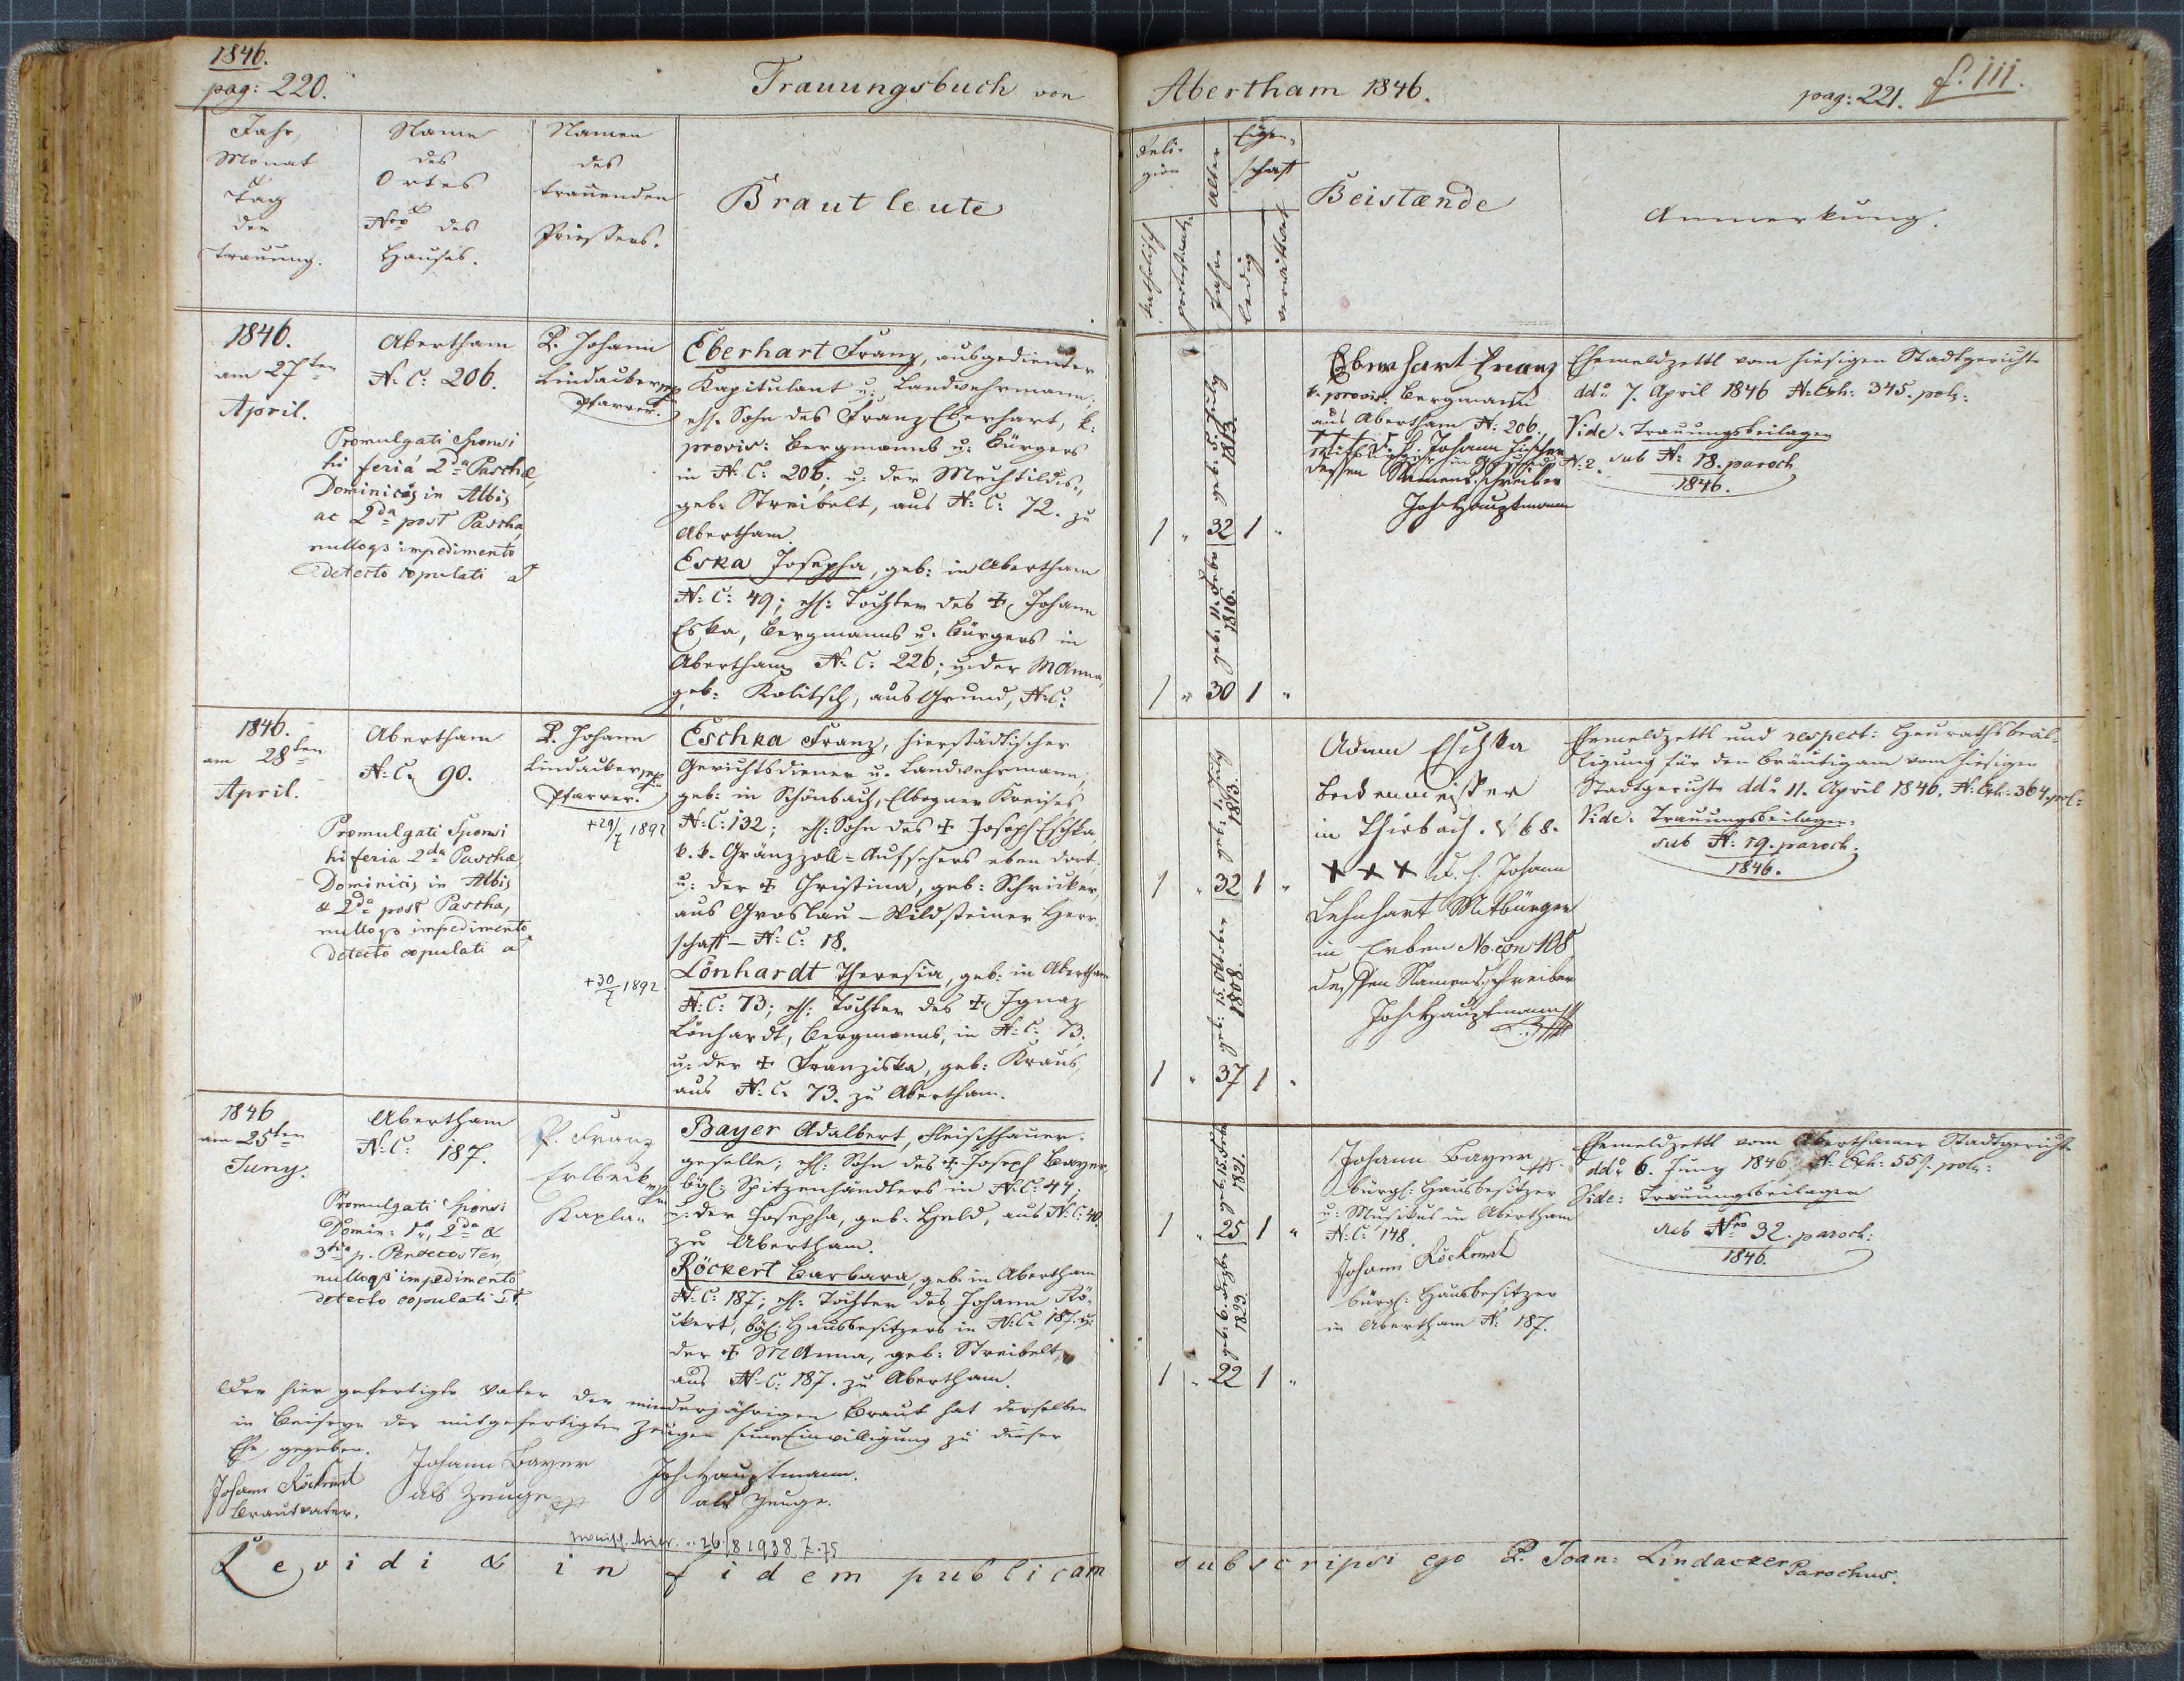 1846.
pag: 220.
Trauungsbuch von
Jahr,
Monat
&
Tag
der
Trauung.
Name
des
Ortes
&
Nro des
Hauses.
Namen
des
trauenden
Priesters.
Brautleute
1846.
am 27ten
April.
Promulgati Sponsi
hi feriâ 2da Paschæ,
Dominicis in Albis
ac 2da post Pascha,
nulloqs impedimento
detecto copulati st
Abertham
N: C: 206.
P. Johann
Lindacker mp
Pfarrer.
Eberhart Franz, ausgedienter
Kapitulant u: Landwehrmann;
ehl. Sohn des Franz Eberhart, k:
provis: Bergmanns u: Bürgers
in N: C: 206; u: der Mechtildis,
geb: Streibelt, aus N: C: 72. zu
Abertham.
Eska Josepha, geb: in Abertham
N: C: 49; ehl: Tochter des + Johann
Eska, Bergmanns u: Bürgers in
Abertham N: C: 226; u: der MAnna,
geb: Kolitsch, aus Grund, N: C:
1846.
am 28ten
April.
Promulgati Sponsi
hi feria 2da Paschæ,
Dominicis in Albis
& 2da post Pascha,
nulloqs impedimento
detecto copulati st
Abertham
N: C: 90.
P. Johann
Lindacker mp
Pfarrer.
+29/7 1892
+30/7 1892.
Eschka Franz, hierstädtischer
Gerichtsdiener u: Landwehrmann,
geb: in Schönbach, Elbogner Kreises
N: C: 132; ehl: Sohn des + Joseph Eschka,
k. k. Gränzzoll=Aufsehers eben dort,
u: der + Christina, geb: Schricker,
aus Groslau – Wildsteiner Herr-
schaft – N: C: 18.
Lönhardt Theresia, geb: in Abertham
N: C: 73; ehl: Tochter des + Ignaz
Lönhardt, Bergmanns, in N: C: 73;
u: der + Franziska, geb: Kraus,
aus N: C: 73. zu Abertham.
1846
am 25ten
Juny.
Promulgati Sponsi
Domin: 1a, 2da &
3tia p. Pentecosten,
nulloqs impedimento
detecto copulati st.
Abertham
N: C: 187.
P. Franz
Erlbeck mp
Kaplan
Bayer Adalbert, Fleischhauer-
geselle; ehl: Sohn des + Joseph Bayer,
bgl: Spitzenhändlers in N: C: 44;
u: der Josepha, geb: Held, aus N: C: 40
zu Abertham.
Röckert Barbara, geb: in Abertham
N: C: 187; ehl: Tochter des Johann Rö-
ckert, bgl: Hausbesitzers in N: C: 187. u:
der + MAnna, geb: Streibelt,
aus N: C: 187. zu Abertham.
Der hier gefertigte Vater der minderjährigen Braut hat derselben
in Beiseyn der mitgefertigten Zeugen seine Einwilligung zu dieser
Ehe gegeben.
Johann Röckert
Brautvater.
Johann Bayer
als Zeuge
Joh Hauptmann.
als Zeuge.
26/8 1938
Revidi & in fidem publicam
Abertham 1846.
pag: 221.
f. 111.
Reli-
gion
katholisch
protestant:
Alter
Jahre
Eigen-
schaft
ledig
verwittwet
Beistænde
Anmerkung.
geb: 5. July
1813.
1 " 32 1 "
geb: 11. Febr
1816.
1 " 30 1 "
Eberhart Franz
k. provis: Bergmann
aus Abertham N: 206.
+++ d. h. Johann Fischer
dessen Namensschreiber
Joh Hauptmann
Ehemeldzettl vom hiesigen Stadtgerichte
ddo 7. April 1846 N: Exh: 345. pol:
Vide: Trauungsbeilagen
sub N: 18. paroch.
1846.
geb: 1. July
1813.
1 " 32 1 "
geb: 15. Oktober
1808.
1 " 37 1 "
Adam Eschka
in Thirbach. N 68.
+++ d. h. Johann
Lehnhart Mitbürger
in No con 108
dessen Namensschreiber
Joh Hauptmann
Ehemeldzettl und respect: Heurathsbewil-
ligung für den Bräutigam vom hiesigen
Stadtgerichte ddo 11. April 1846. N: Exh: 364. pol:
Vide: Trauungsbeilagen
sub N: 19. paroch:
1846.
1821.
1 " 25 1 "
geb: 6. Dezbr
1823.
1 " 22 1 "
Johann Bayer
bürgl: Hausbesitzer
u: Musikus in Abertham
N: C: 148.
Johann Röckert
bürgl: Hausbesitzer
in Abertham N: 187.
Ehemeldzettl vom Aberthamer Stadtgericht
ddo 6. Juny 1846 N: Exh: 559. pol:
Vide: Trauungsbeilagen
sub Nro 32. paroch:
1846.
subscripsi ego P. Joan: Lindacker Parochus.